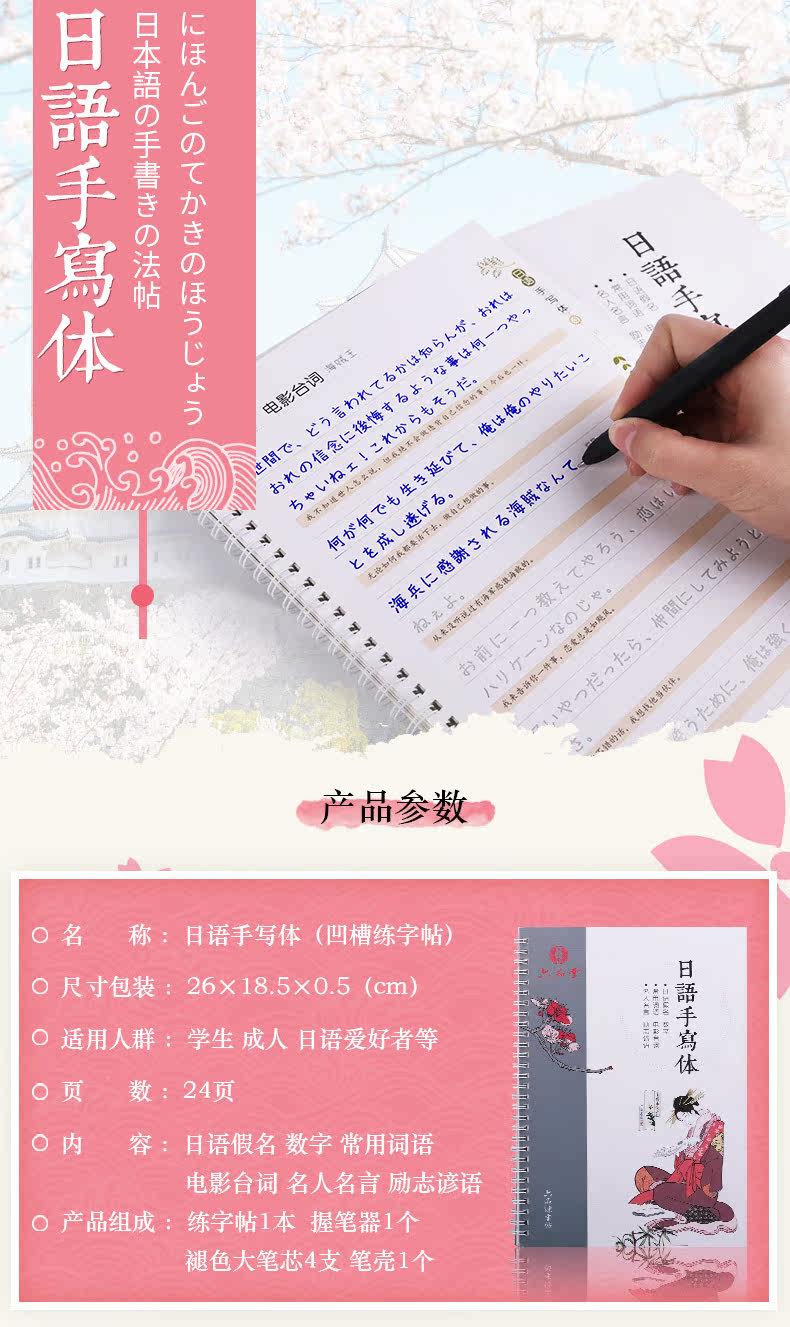 日語手寫体
日本語の手書きの法帖
にほんごのてかきのほうじょう
日語手寫
手写体
电影台词 海贼王
世間で、どう言われてるかは知らんが、おれは
おれの信念に後悔するような事は何一つやっ
ちゃいねェ!これからもそうだ。
何が何でも生き延びて、俺は俺のやりたいこ
とを成し遂げる。
无论如何我都要活下去,做自己想做的事。
海兵に感謝される海賊なんて
ねぇよ。
从来没听说过有海军感激海贼的。
お前に一つ教えてやろう、恋はい
ハリケーンなのじゃ。
我来告诉你一件事,恋爱总是如飓风。
いやつだったら、仲間にしてみようと
我想找他当伙伴。
うために、俺は強く
产品参数
名 称:日语手写体(凹槽练字帖)
尺寸包装:26×18.5×0.5(cm)
适用人群:学生 成人 日语爱好者等
页 数:24页
内 容:日语假名 数字 常用词语
电影台词 名人名言 励志谚语
产品组成:练字帖1本 握笔器1个
褪色大笔芯4支 笔壳1个
六品堂
日語手寫体
六品堂字帖